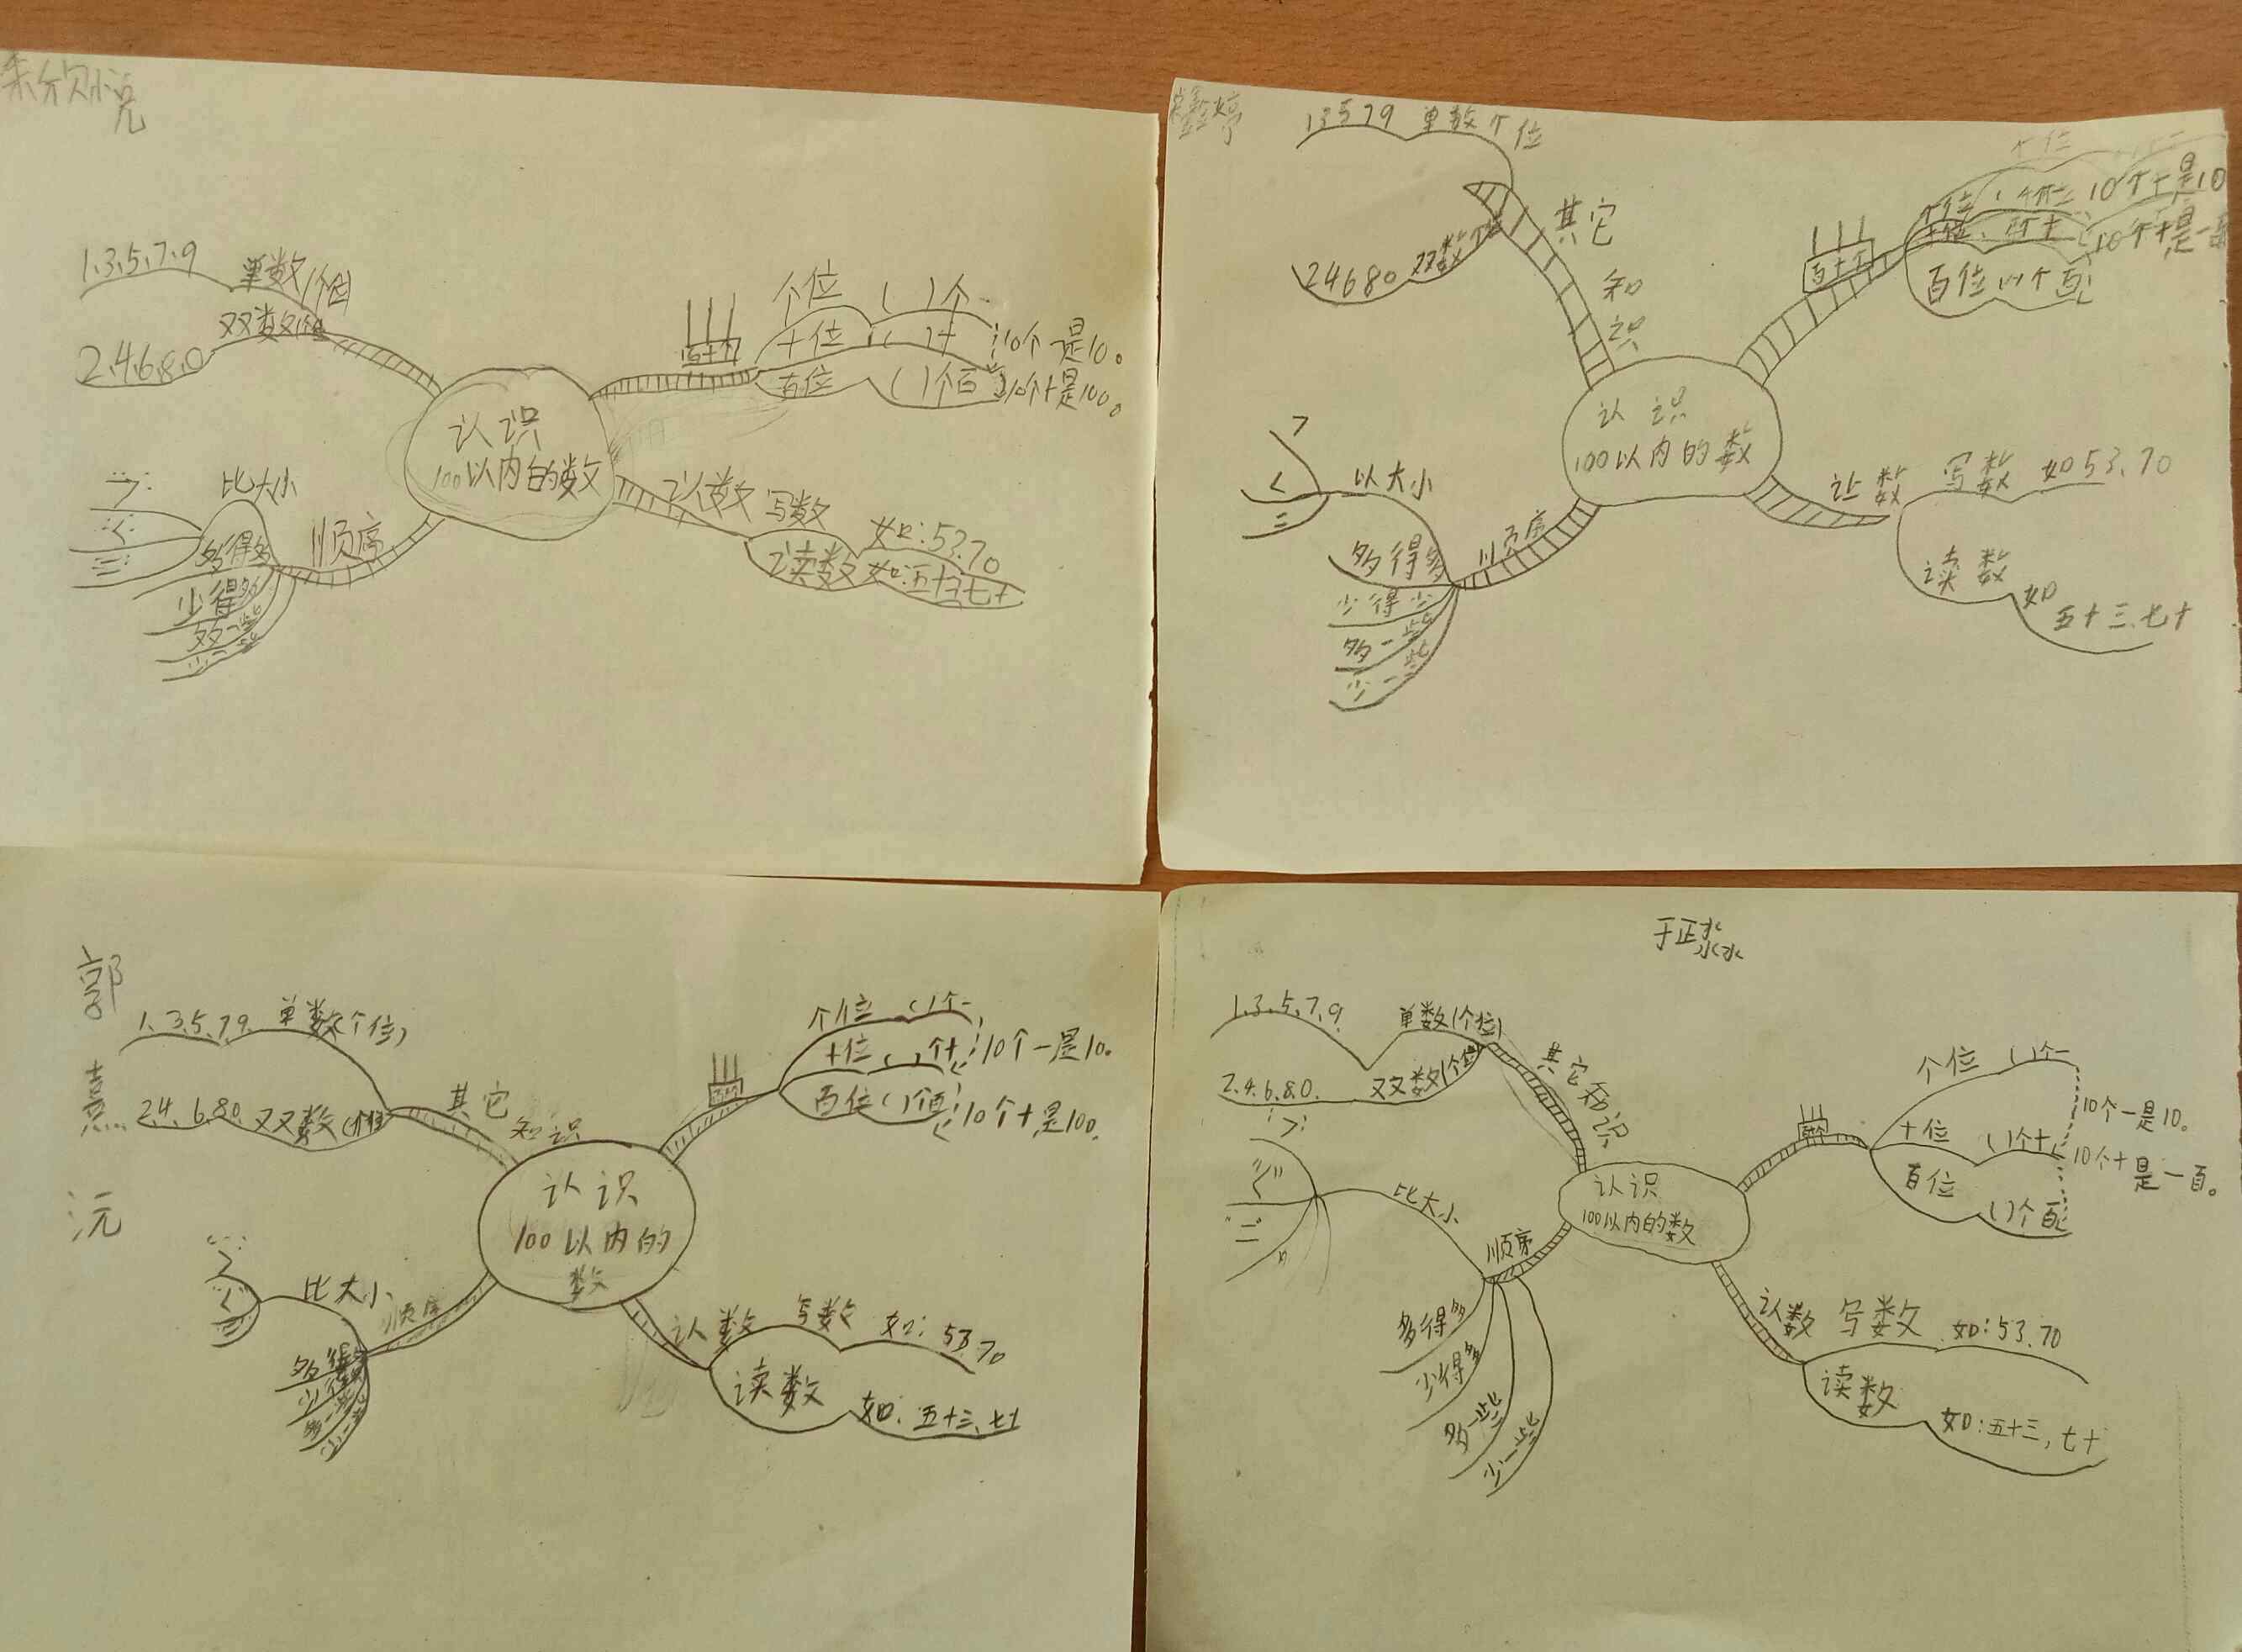 1.3.5.7.9 单数(个位)
2.4.6.8.0 双数(个位)
个位 ( )个一
十位 ( )十 10个一是10。
百位 ( )个百 10个十是100。
认识
100以内的数
比大小
>
<
=
多得多
少得多
多一些
少一些
顺序
认数 写数 如:53.70
读数 如:五十三七十
鑫婷
13579 单数个位
24680 双数个位
其它
知
识
百十个
10个十是10
10个十是一百
百位 个百
认 识
100以内的数
>
<
=
以大小
多得多
少得少
多一些
少一些
顺序
认数 写数 如53.70
读数 如
五十三.七十
郭
熹
沅
1.3.5.7.9. 单数(个位)
2.4.6.8.0. 双数(个位)
其它
知识
个位 ( )个一
十位 ( )个十 10个一是10。
百位( )个百 10个十是100.
认识
100以内的
数
>
<
=
比大小
顺序
多得多
多一些
少一些
认数 写数 如:53.70
读数 如:五十三、七十
于正淼
1.3.5.7.9. 单数(个位)
2.4.6.8.0. 双数(个位)
其它知识
个位 ( )个一
10个一是10。
十位 ( )个十
10个十是一百。
百位 ( )个百
认识
100以内的数
>
<
=
比大小
顺序
多得多
少得多
多一些
少一些
认数 写数 如:53.70
读数 如:五十三,七十